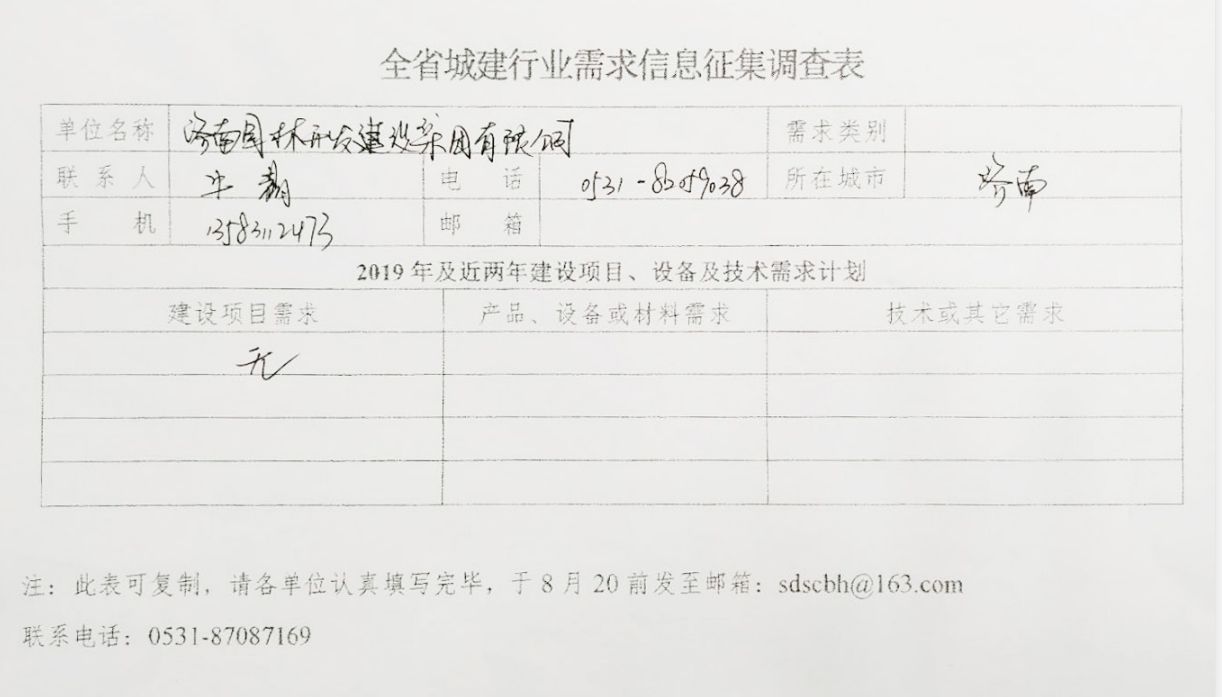 全省城建行业需求信息征集调查表
单位名称 济南园林开发建设集团有限公司 需求类别
联系人 电话 0531-82059038 所在城市 济南
手机 13583112473 邮箱
2019年及近两年建设项目、设备及技术需求计划
建设项目需求 产品、设备或材料需求 技术或其它需求
无
注：此表可复制，请各单位认真填写完毕，于8月20前发至邮箱：sdscbh@163.com
联系电话：0531-87087169